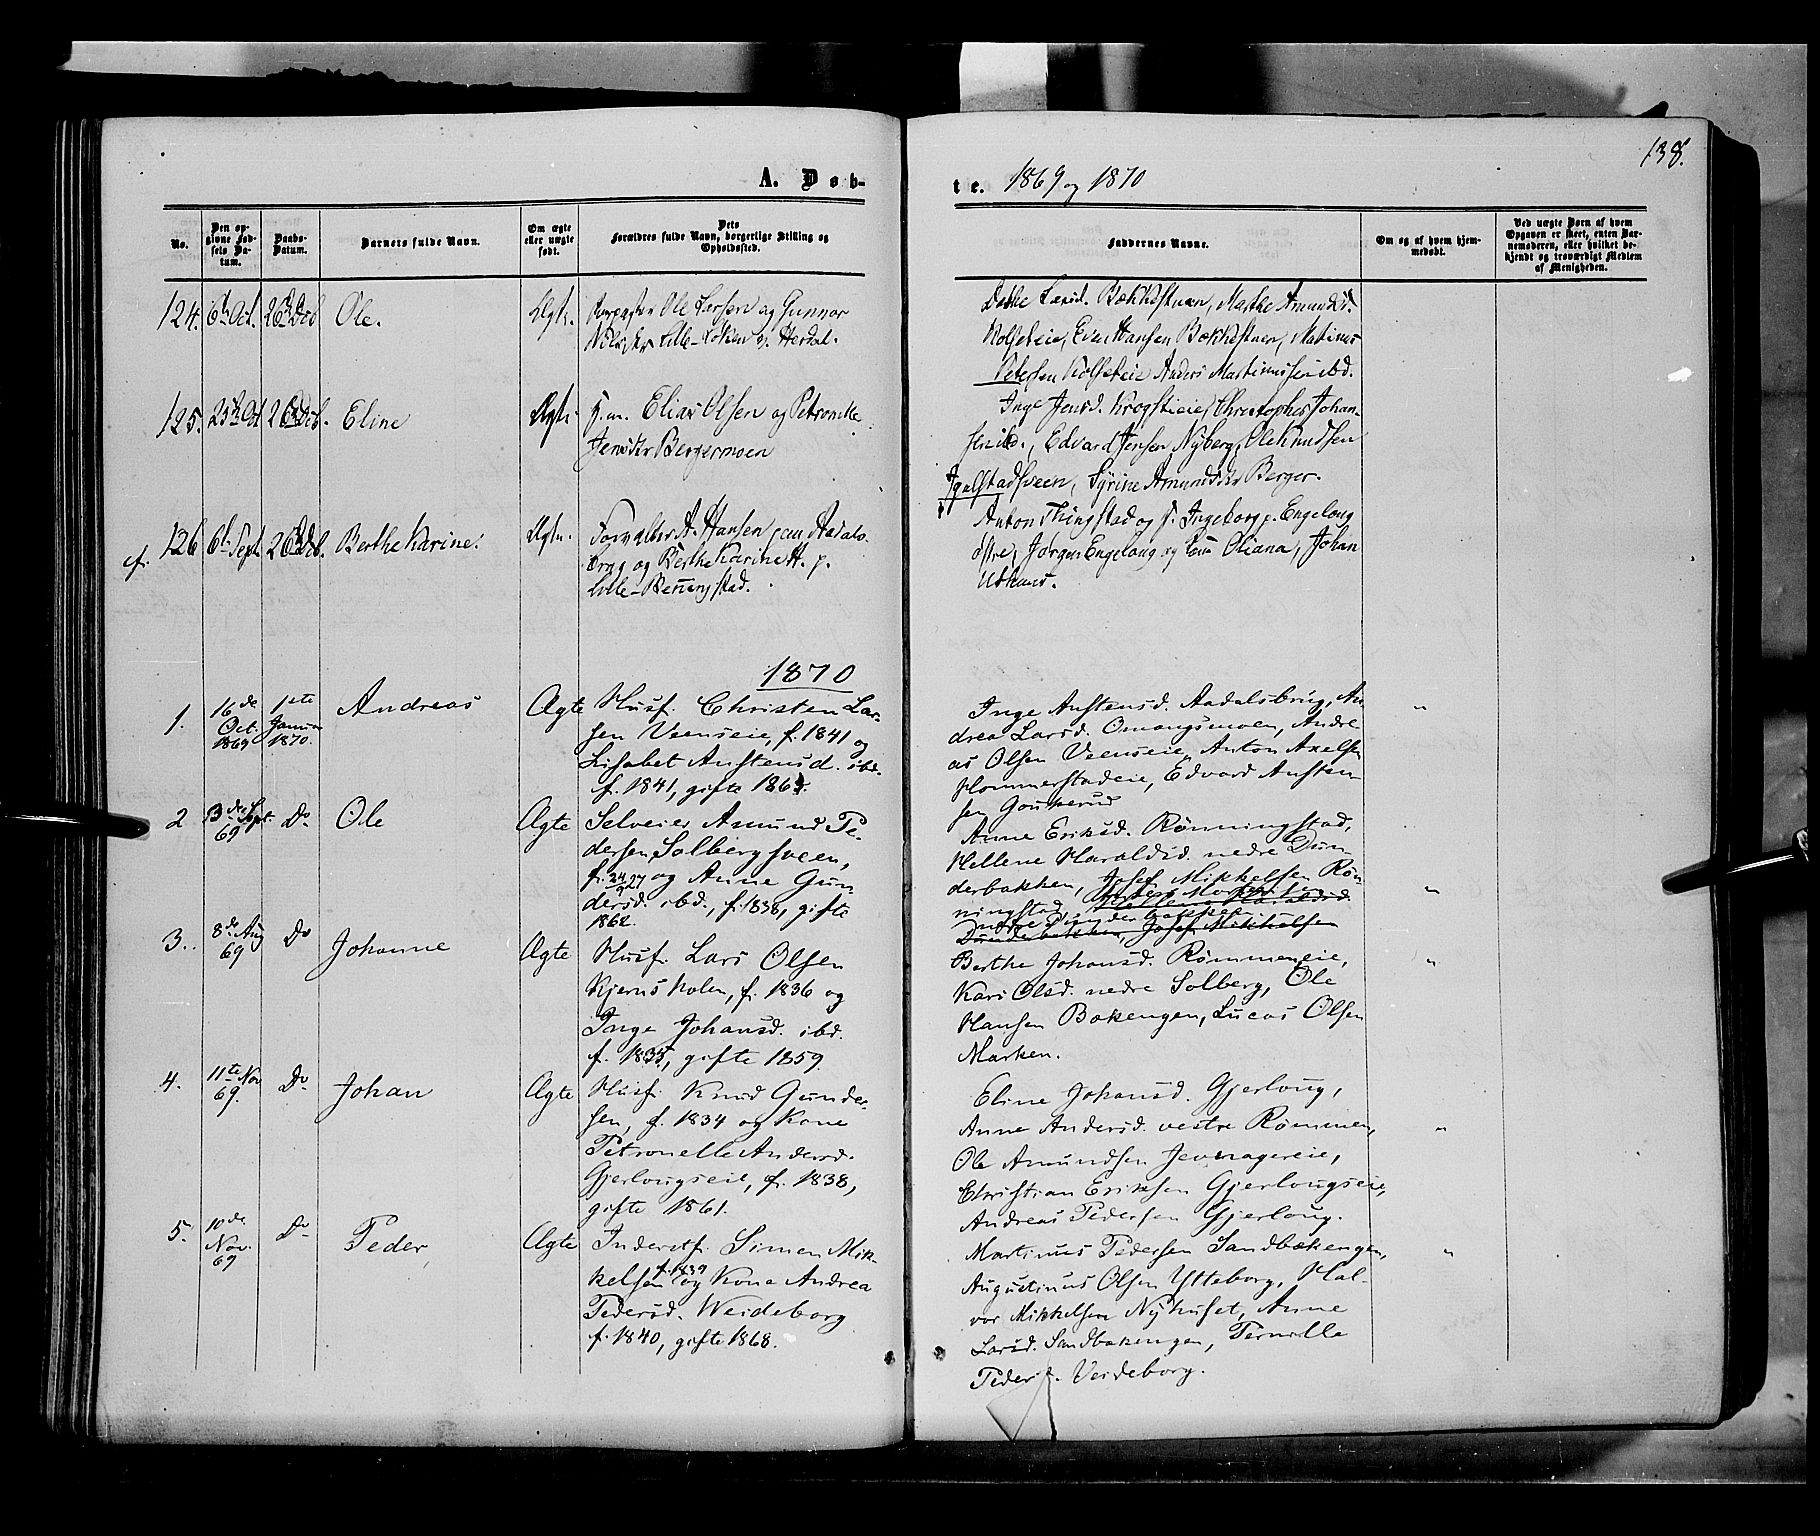 138.
A. Døb-
te. 1869 og 1870
No.
Den op-
givne Fød-
sels Da-
tum.
Daabs-
Datum.
Barnets fulde Navn.
Om ægte
eller uægte
født.
Dets
Forældres fulde Navn, borgerlige Stilling og
Opholdssted.
Faddernes Navne.
Om og af hvem hjem-
medøbt.
Ved uægte Børn af hvem
Opgaven er skeet, enten Bar-
nemoderen, eller hvilket be-
kjendt og troværdigt Medlem
af Menigheden.
124. 6te Oct. 26de Deb. Ole. Ægte.
Ole Larsen og Gunnor
Nilsdtr Lille-Løken
Larsd. Bækkestuen, Marthe Amundsd.
Rolfseie, Even Hansen Bækkestuen, Matinus
Petersen Rolfseie Anders Martinussen ibd.
125. 25de Oct 26de Deb. Eline Ægte.
Elias Olsen og Petronille
Jensdtr Bergermoen
Inge Jensd. Krogstieie, Christopher Johan-
sen ibd., Edvard Jensen Nyberg, Ole Knudsen
Igelstadsveen, Syrine Amundsdtr Berger.
cf. 126 6te Sept. 26de Deb. Berthe Karine. Ægte.
Forvalter A. Hansen paa Aadals-
brug og Berthe Karine H. p.
Lille-Benningstad.
Anton Thingstad og Ingeborg p. Engelaug
østre, Jørgen Engelaug og Kone Oliana, Johan
Uthuus.
1870
1. 16de
Oct.
1869
1ste
Januar
1870.
Andreas Ægte
Husf. Christen Lar-
sen Veenseie, f. 1841 og
Lisabet Austensd. ibd.
f. 1841, gifte 1863.
Inge Austensd. Aadalsbrug, An-
drea Larsd. Omangsmoen, Andre-
as Olsen Veenseie, Anton Axelsen
Hommerstadeie, Edvard Austen-
sen Goukerud
"
2 13de Sept.
69
Do Ole Ægte
Selveier Amund Pe-
dersen Solbergsveen,
f. 24/9 27 og Anne Gun-
dersd. ibd., f. 1838, gifte
1862.
Anne Eriksd. Rønningstad,
Hellene Haraldsd. nedre Dun-
derbakken, Josef Mikkelsen Røn-
ningstad,
Dunderbakken, Josef Mikkelsen
"
3. 8de Aug
69
Do Johanne Ægte
Husf. Lars Olsen
Kjernsholen, f. 1836 og
Inge Johansd. ibd.
f. 1835, gifte 1859.
Berthe Johansd. Rømmeneie,
Kari Olsd. nedre Solberg, Ole
Hansen Bakengen, Lucas Olsen
Marken.
"
4. 11te Nov
69.
Do Johan Ægte
Husf. Knud Gunder-
sen, f. 1834 og Kone
Petronelle Andersd.
Gjerlougseie, f. 1838,
gifte 1861.
Eline Johansd. Gjerloug,
Anne Andersd. vestre Rømmen,
Ole Amundsen Jevnagereie,
Christian Eriksen Gjerlougseie,
Andreas Pedersen Gjerloug.
"
5. 10de
Nov.
69
Do Peder Ægte
Inderstf. Simen Mik-
kelsen f. 1839 og Kone Andrea
Pedersd. Weideborg
f. 1840, gifte 1868.
Martinus Pedersen Sandbækengen,
Augustinus Olsen Ytteborg, Hal-
vor Mikkelsen Nyhuset, Anne
Larsd. Sandbakengen, Pernille
Pedersd. Veideborg.
"